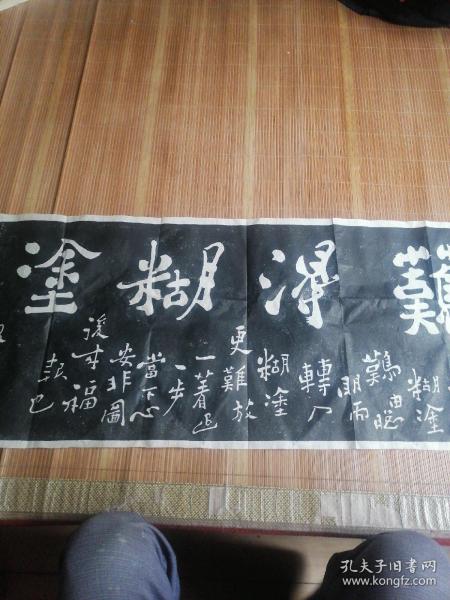 難得糊塗
糊塗
難由聰
明而
轉入
糊塗
更難放
一著退
一步
當下心
安非圖
後來福
報也
孔夫子旧书网
www.kongfz.com